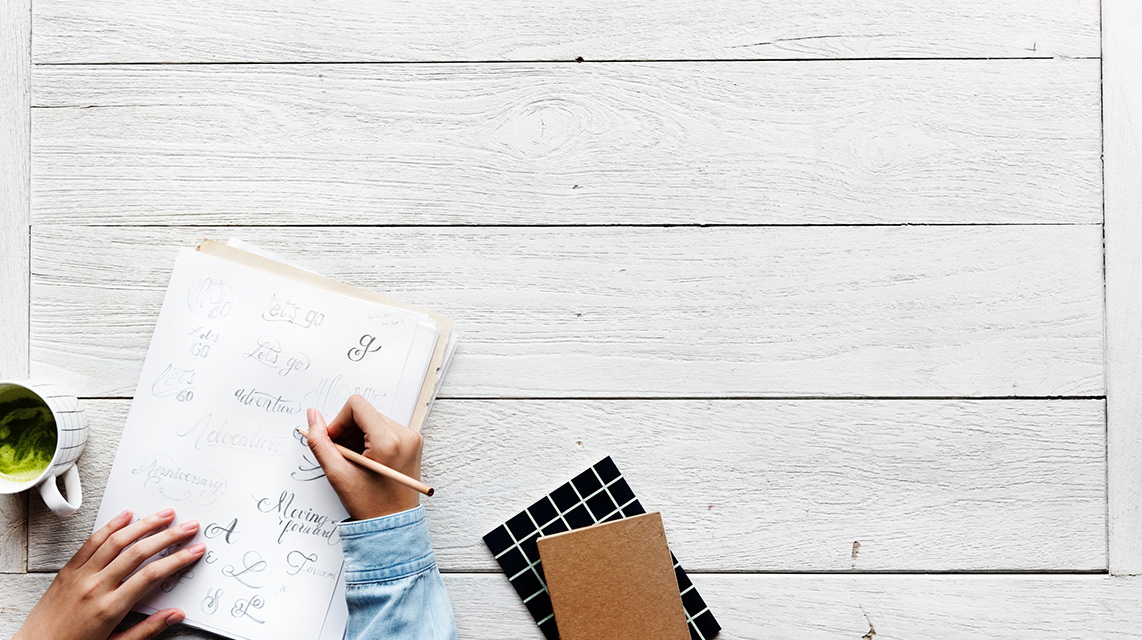 let's go
g
Let's
GO
Let's go
Let's
GO
adventure
Adventure
Anniversary
Moving
forward
A
L
S
L